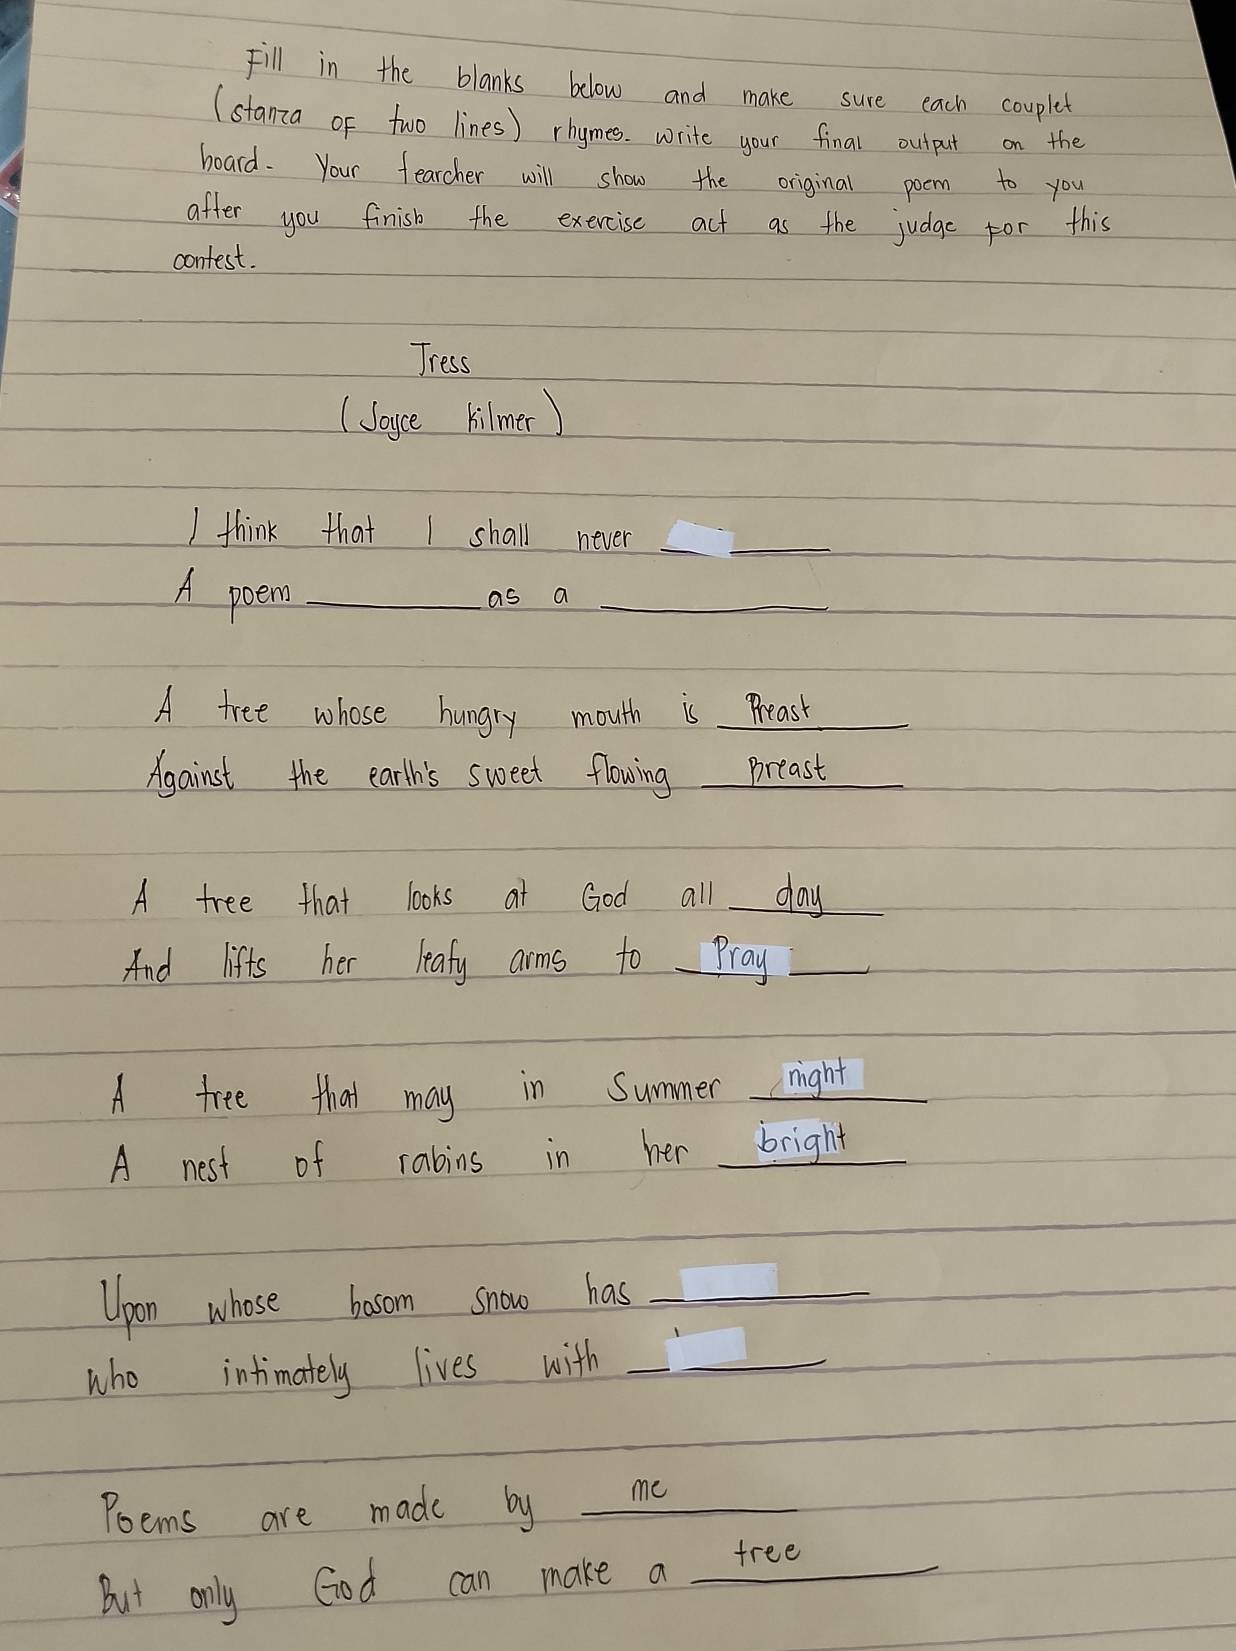 Fill in the blanks below and make sure each couplet
(stanza of two lines) rhymes. write your final output on the
board. Your tearcher will show the original poem to you
after you finish the exercise act as the judge for this
contest.
Tress
(Joyce Kilmer)
I think that I shall never ______
A poem ______ as a ______
A tree whose hungry mouth is Preast
Against the earth's sweet flowing Breast
A tree that looks at God all day
And lifts her leafy arms to Pray
A tree that may in Summer night
A nest of rabins in her bright
Upon whose bosom snow has ______
who intimately lives with ______
Poems are made by me
But only God can make a tree